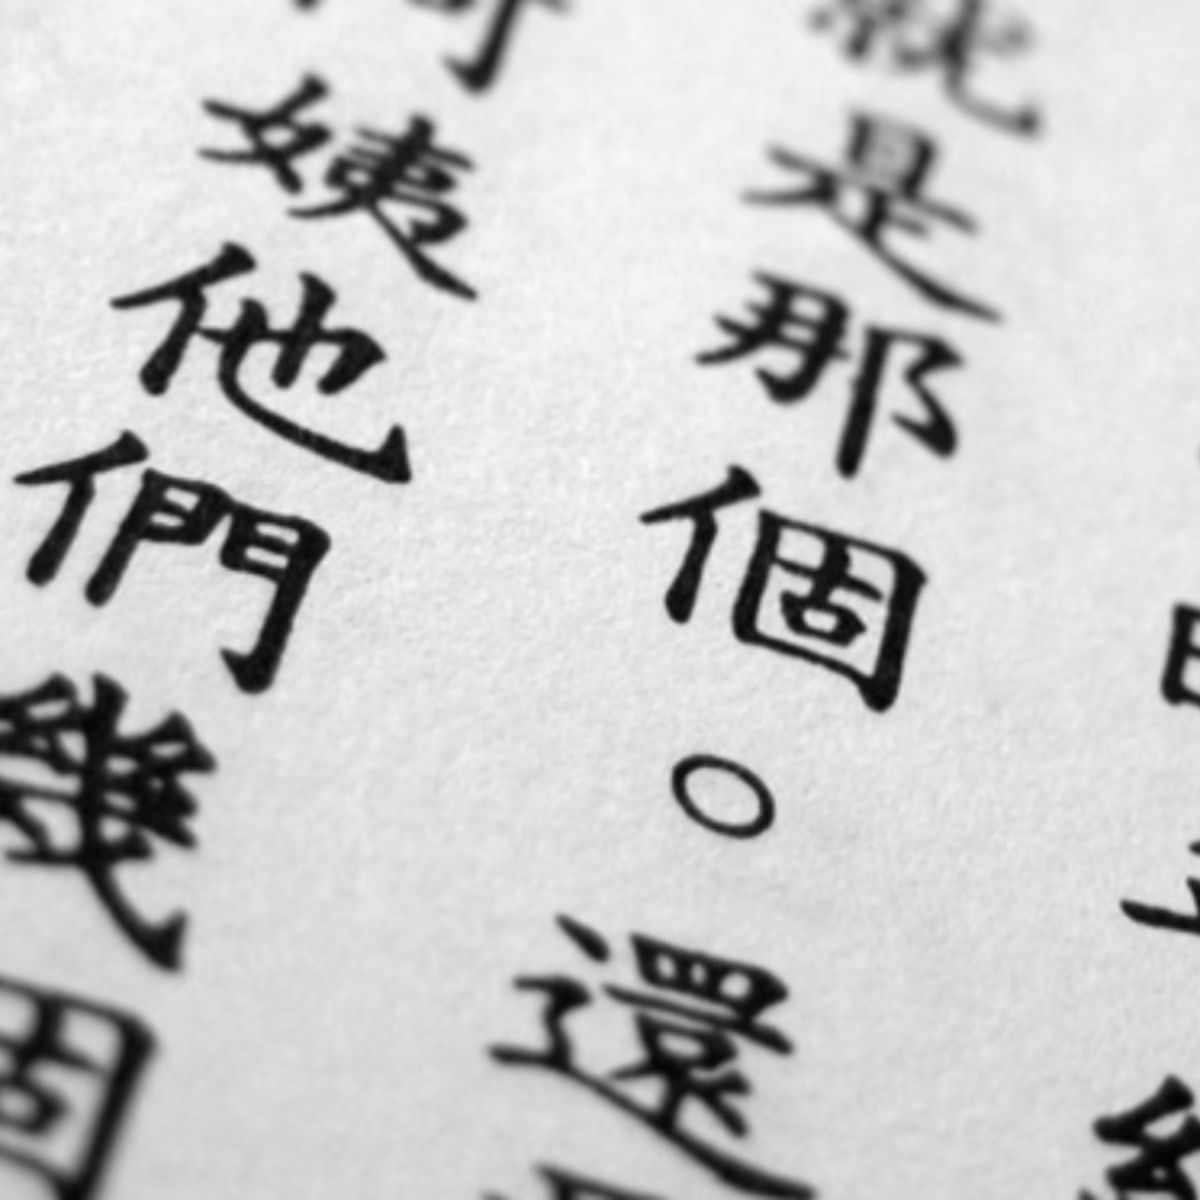 就是那個。還
阿姨他們幾個